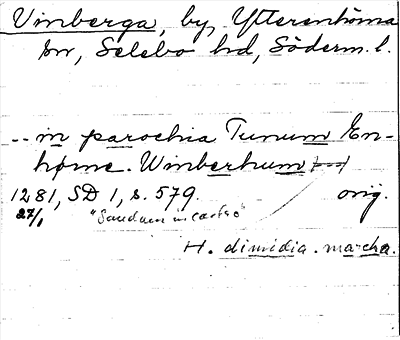 Vinberga, by, Ytterenhörna
sn, Selebo hd, Söderm. l.
-- in parochia Turum En-
hørne. Winberhum
1281, SD 1, s. 579. orig.
27/1 "Saudum in castro"
H. dimidia. marcha.